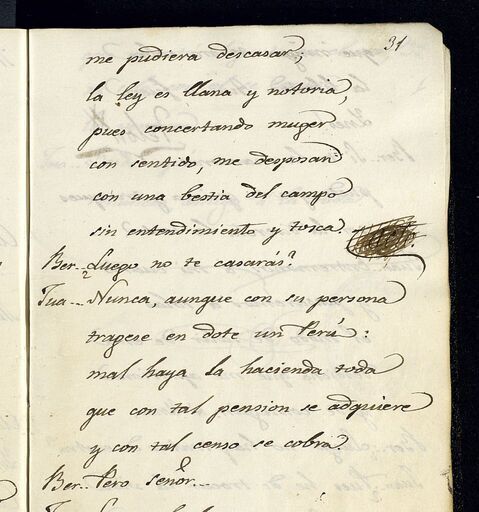 31
me pudiera descasar;
la ley es llana y notoria,
pues concertando muger
con sentido, me desposan
con una bestia del campo
sin entendimiento y tosca.
Ber.. ¿Luego no te casarás?
Jua... Nunca, aunque con su persona
tragese en dote un Perú:
mal haya la hacienda toda
que con tal pension se adquiere
y con tal censo se cobra.
Ber.. Pero señor...